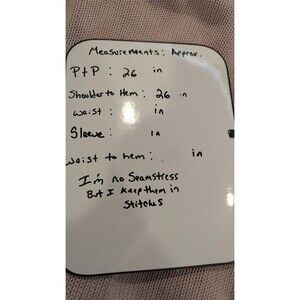 Measurements: Approx.
PtP : 26 in
Shoulder to Hem : 26 in
waist : in
Sleeve : in
waist to hem : in
I'm no Seamstress
But I Keep them in
Stitches